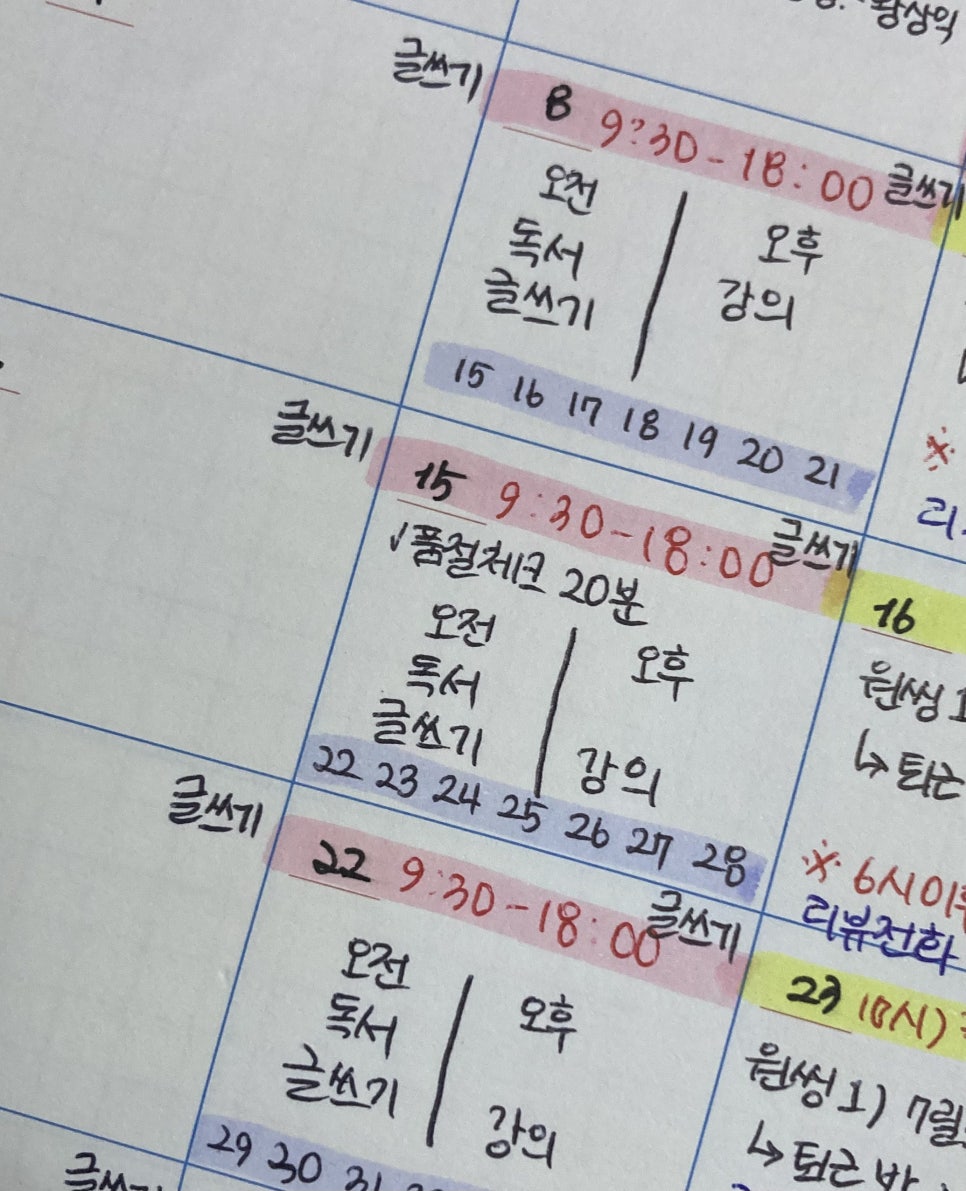 왕상익
글쓰기
8 9:30-18:00 글쓰기
오전
독서
글쓰기
오후
강의
15 16 17 18 19 20 21
글쓰기
15 9:30-18:00 글쓰기
✓품절체크 20분
오전
독서
글쓰기
오후
강의
22 23 24 25 26 27 28
16
원씽 1
↳ 퇴근
※ 6시이후
리뷰전화
글쓰기
22 9:30-18:00 글쓰기
오전
독서
글쓰기
오후
강의
29 30 31
23 10시)
원씽 1) 7월
↳ 퇴근 바
글쓰기